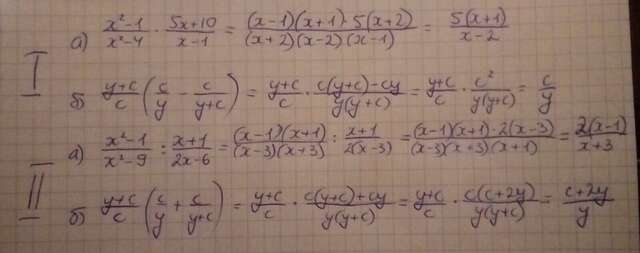 I
а) \frac{x^2-1}{x^2-4} \cdot \frac{5x+10}{x-1} = \frac{(x-1)(x+1) \cdot 5(x+2)}{(x+2)(x-2)(x-1)} = \frac{5(x+1)}{x-2}
б) \frac{y+c}{c} \left( \frac{c}{y} - \frac{c}{y+c} \right) = \frac{y+c}{c} \cdot \frac{c(y+c)-cy}{y(y+c)} = \frac{y+c}{c} \cdot \frac{c^2}{y(y+c)} = \frac{c}{y}
II
а) \frac{x^2-1}{x^2-9} : \frac{x+1}{2x-6} = \frac{(x-1)(x+1)}{(x-3)(x+3)} : \frac{x+1}{2(x-3)} = \frac{(x-1)(x+1) \cdot 2(x-3)}{(x-3)(x+3)(x+1)} = \frac{2(x-1)}{x+3}
б) \frac{y+c}{c} \left( \frac{c}{y} + \frac{c}{y+c} \right) = \frac{y+c}{c} \cdot \frac{c(y+c)+cy}{y(y+c)} = \frac{y+c}{c} \cdot \frac{c(c+2y)}{y(y+c)} = \frac{c+2y}{y}